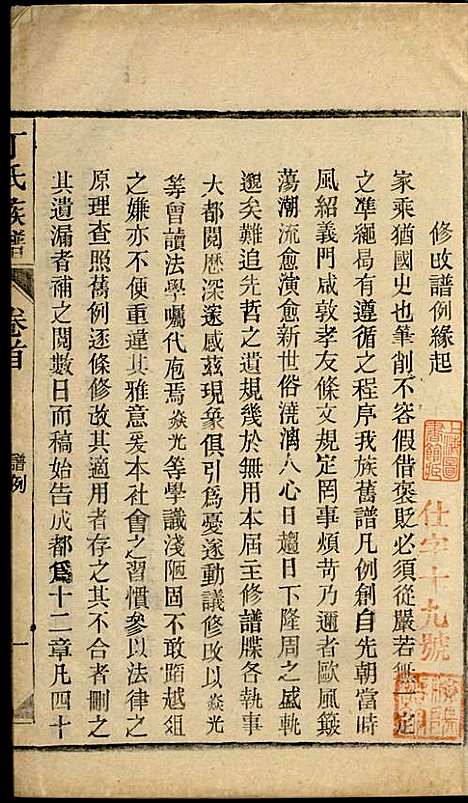 修改譜例緣起
家乘猶國史也筆削不容假借褒貶必須從嚴若無一定
之準繩局有遵循之程序我族舊譜凡例創自先朝當時
風紹義門咸敦孝友條文規定罔事煩苛乃邇者歐風簸
蕩潮流愈演愈新世俗澆漓人心日趨日下隆周之盛軌
邈矣難追先哲之遺規幾於無用本屆主修譜牒各執事
大都閱歷深邃感茲現象俱引為憂遂動議修改以焱光
等曾讀法學囑代庖焉焱光等學識淺陋固不敢踰越俎
之嫌亦不便重違其雅意爰本社會之習慣參以法律之
原理查照舊例逐條修改其適用者存之其不合者刪之
其遺漏者補之閱數日而稿始告成都為十二章凡四十
丁氏族譜
卷首
譜例
一
上海圖書館藏
仕字十九號